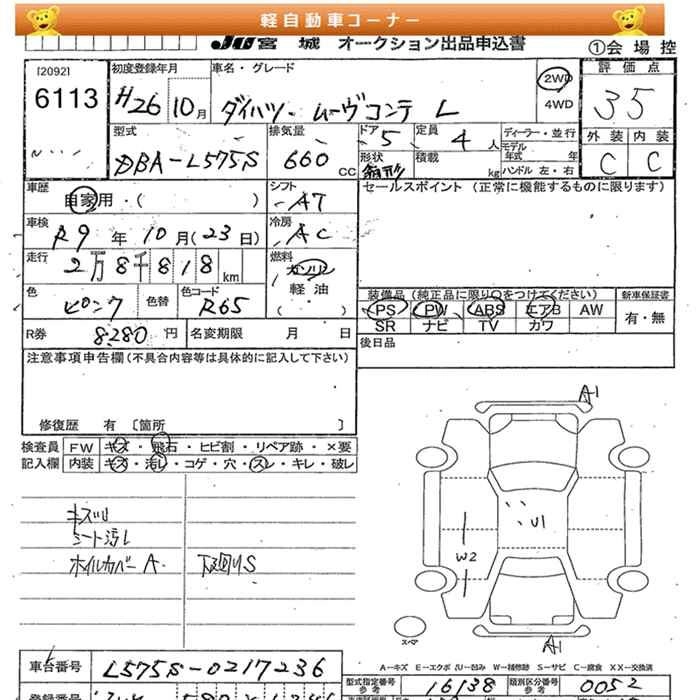 軽自動車コーナー
JU宮城 オークション出品申込書
①会場控
[2092]
6113
初度登録年月
H26 10月
車名・グレード
ダイハツ ムーヴコンテ L
2WD
4WD
評価点
35
型式
DBA-L575S
排気量
660 CC
ドア 5
形状 箱形
定員 4 人
積載 kg
ディーラー・並行
モデル年式 年
ハンドル 左・右
外装 内装
C C
車歴
自家用・( )
シフト
AT
セールスポイント (正常に機能するものに限ります)
車検
R9年10月(23日)
冷房
AC
走行
2万8千818km
燃料
ガソリン
軽油
( )
色
ピンク
色替
色コード
R65
装備品 (純正品に限り○をつけてください)
新車保証書
PS PW ABS エアB AW
有・無
SR ナビ TV カワ
R券 8280円
名変期限 月 日
後日品
注意事項申告欄(不具合内容等は具体的に記入して下さい)
修復歴 有 〔箇所 〕
検査員 FW キズ・飛石・ヒビ割・リペア跡・×要
記入欄 内装 キズ・汚レ・コゲ・穴・スレ・キレ・破レ
シート汚レ
ホイルカバーA 下廻りS
A1
U1
W2
スペア
A1
A-キズ E-エクボ U-凹み W-補修跡 S-サビ C-腐食 XX-交換済
車台番号 L575S-0217236
型式指定番号 参考 16138
類別区分番号 参考 0052
登録番号